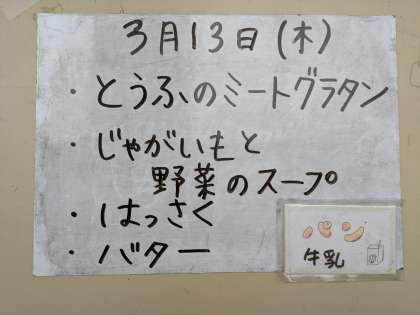 3月13日(木)
・とうふのミートグラタン
・じゃがいもと
野菜のスープ
・はっさく
・バター
パン
牛乳